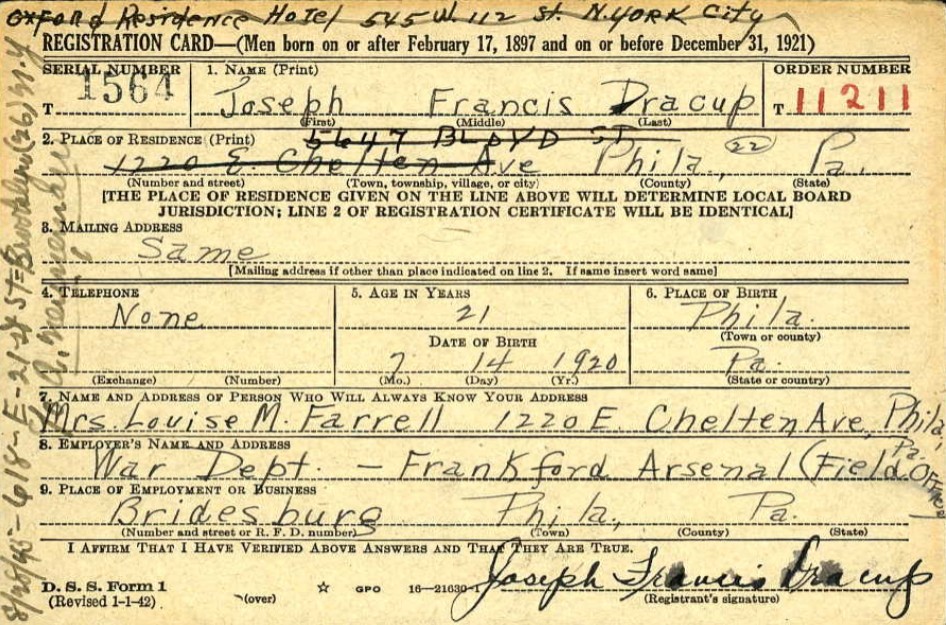 Oxford Residence Hotel 545 W. 112 St. N.YORK City
REGISTRATION CARD—(Men born on or after February 17, 1897 and on or before December 31, 1921)
SERIAL NUMBER
1. NAME (Print)
ORDER NUMBER
T 1564
Joseph Francis Dracup
T 11211
(First) (Middle) (Last)
2. PLACE OF RESIDENCE (Print)
5647 BLOYD ST
1220 E. Chelten Ave Phila., 22 Pa.
(Number and street) (Town, township, village, or city) (County) (State)
[THE PLACE OF RESIDENCE GIVEN ON THE LINE ABOVE WILL DETERMINE LOCAL BOARD
JURISDICTION; LINE 2 OF REGISTRATION CERTIFICATE WILL BE IDENTICAL]
3. MAILING ADDRESS
Same
[Mailing address if other than place indicated on line 2. If same insert word same]
4. TELEPHONE
5. AGE IN YEARS
6. PLACE OF BIRTH
None
21
Phila.
(Town or county)
DATE OF BIRTH
7 14 1920
Pa.
(Exchange) (Number)
(Mo.) (Day) (Yr.)
(State or country)
7. NAME AND ADDRESS OF PERSON WHO WILL ALWAYS KNOW YOUR ADDRESS
Mrs. Louise M. Farrell 1220 E. Chelten Ave, Phila, Pa.
8. EMPLOYER'S NAME AND ADDRESS
War Dept. - Frankford Arsenal (Field Office)
9. PLACE OF EMPLOYMENT OR BUSINESS
Bridesburg Phila., Pa.
(Number and street or R. F. D. number) (Town) (County) (State)
I AFFIRM THAT I HAVE VERIFIED ABOVE ANSWERS AND THAT THEY ARE TRUE.
Joseph Francis Dracup
D. S. S. Form 1
(Revised 1-1-42) (over) ☆ GPO 16—21630-1
(Registrant's signature)
618-E-21st ST-Brooklyn (26) N.Y